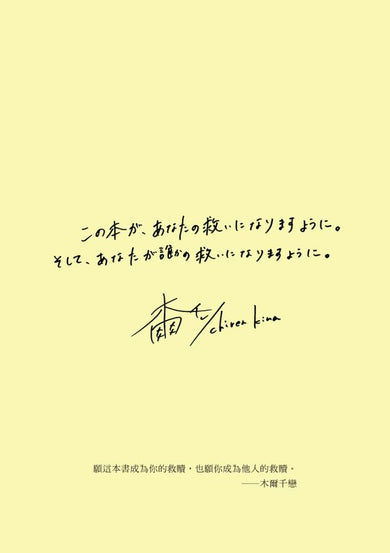 この本が、あなたの救いになりますように。
そして、あなたが誰かの救いになりますように。
chiren kina
願這本書成為你的救贖，也願你成為他人的救贖。
──木爾千戀